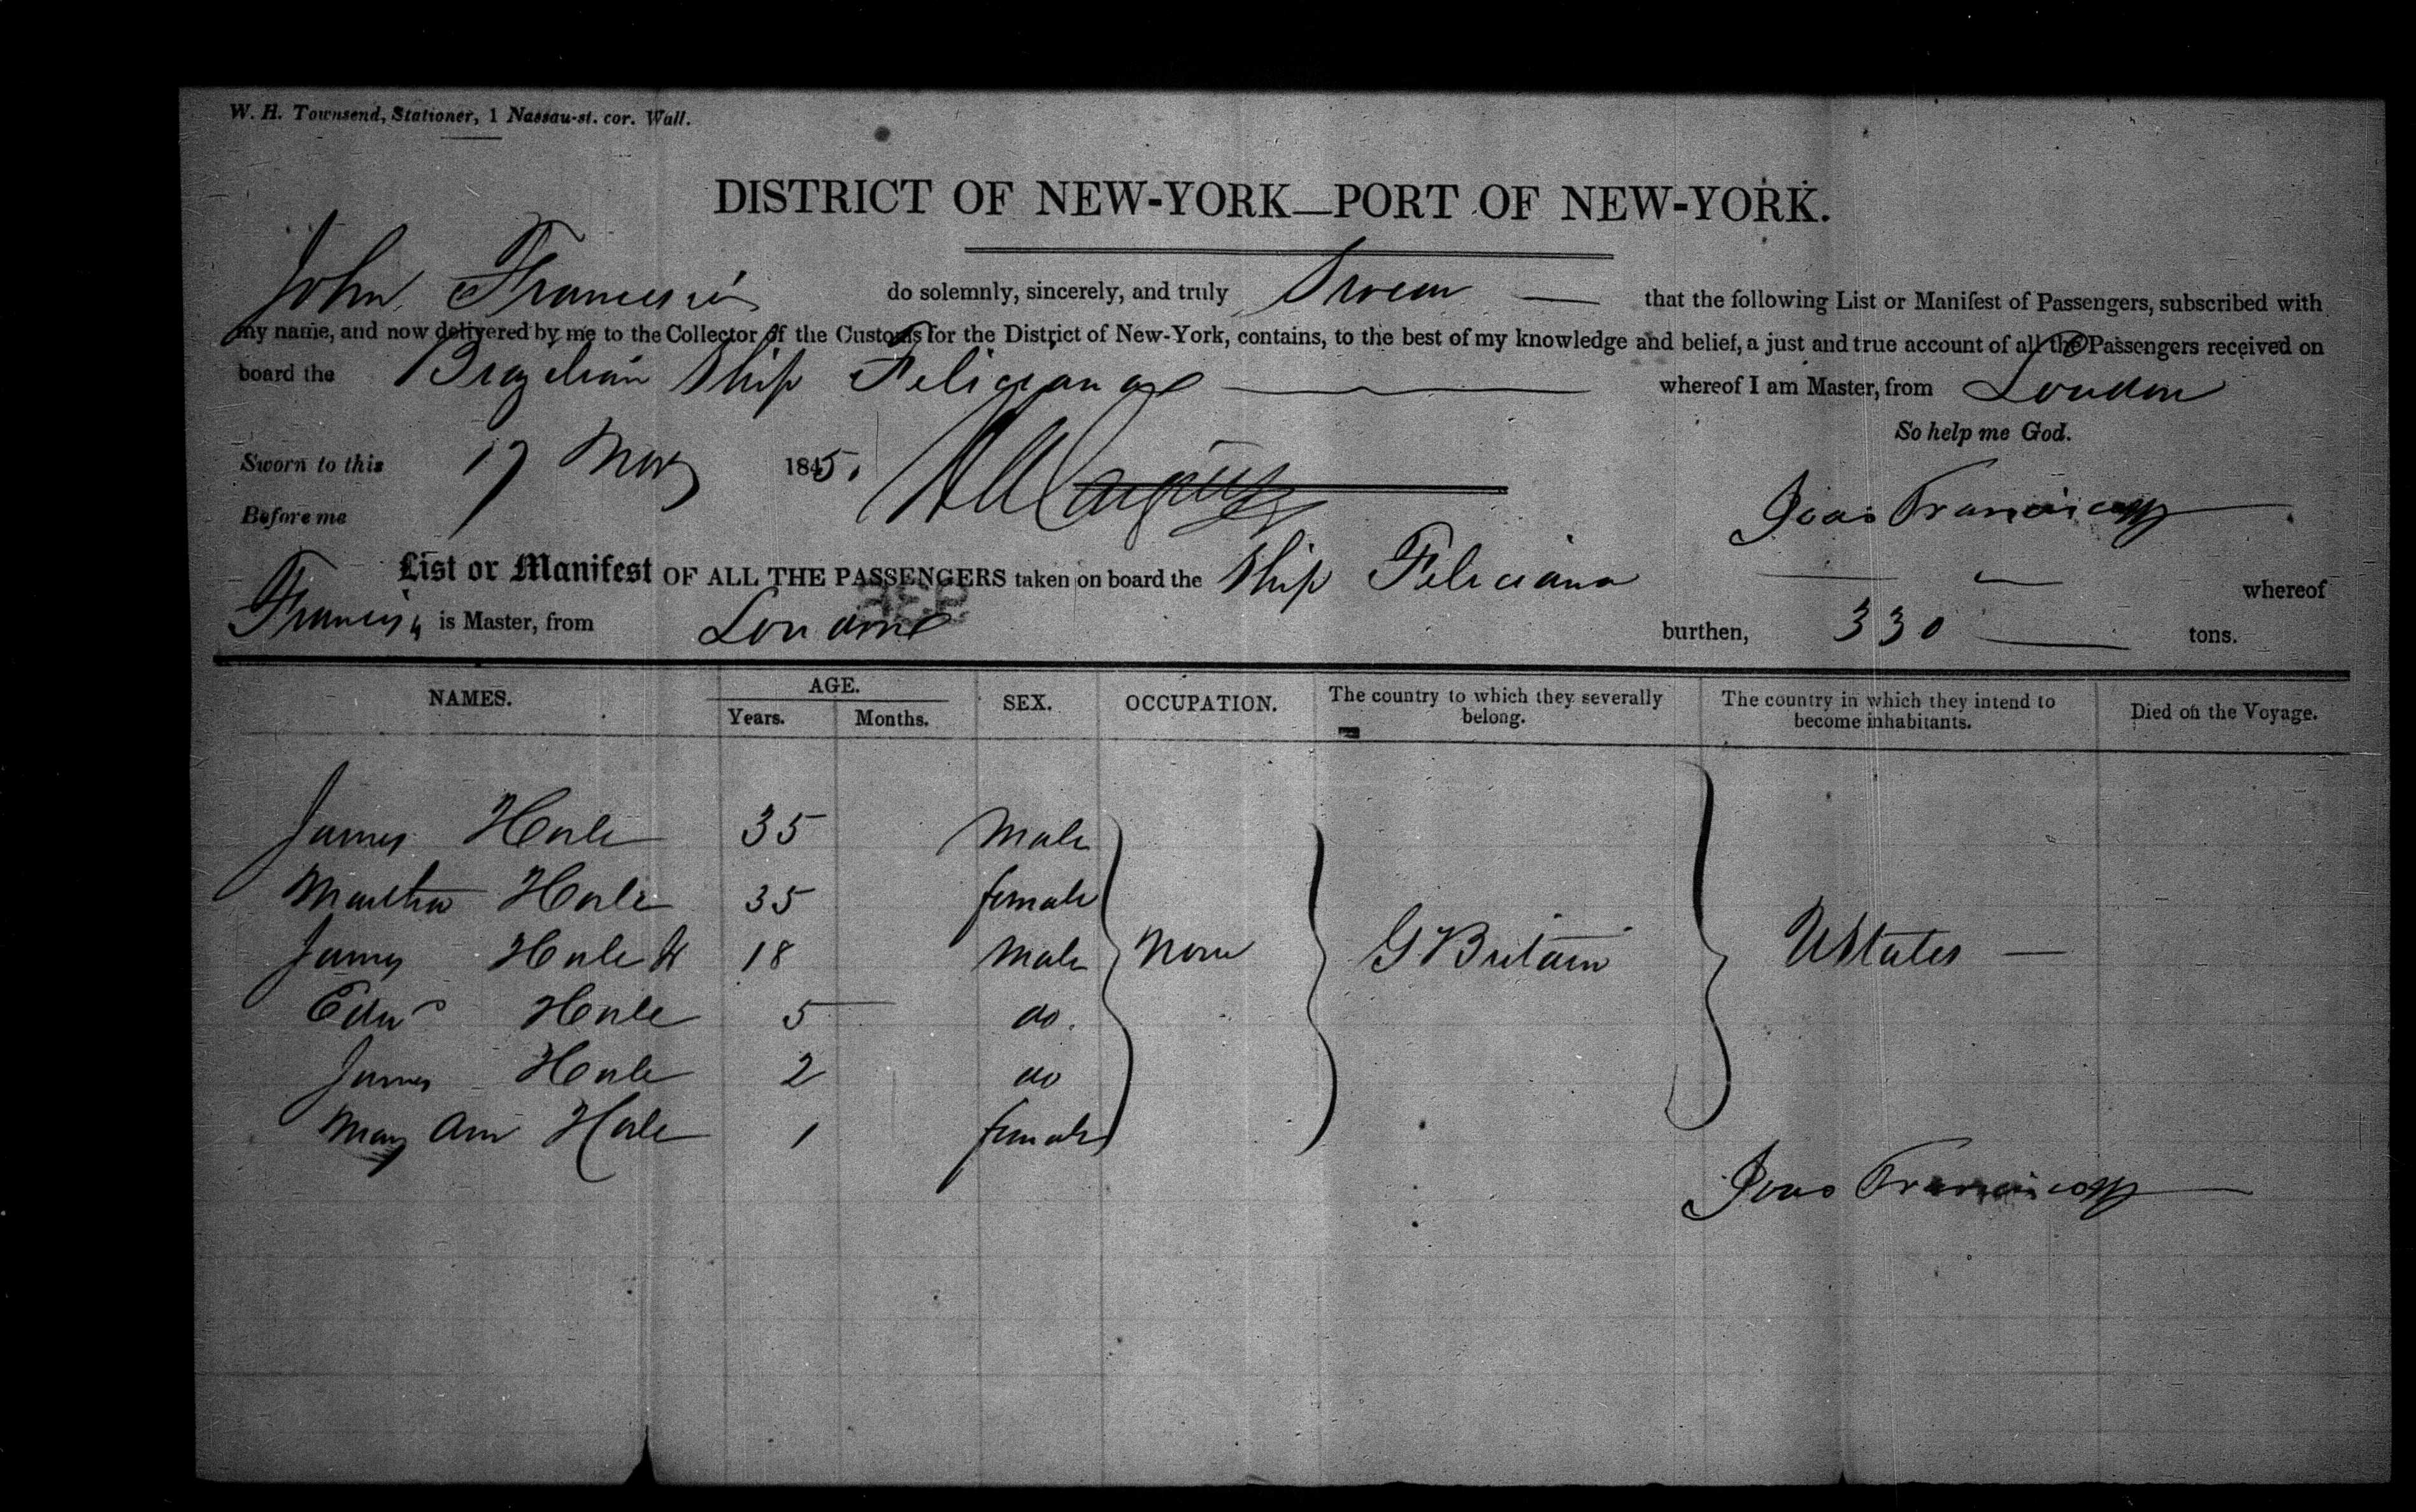 W. H. Townsend, Stationer, 1 Nassau-st. cor. Wall.
DISTRICT OF NEW-YORK—PORT OF NEW-YORK.
John do solemnly, sincerely, and truly Swear — that the following List or Manifest of Passengers, subscribed with
my name, and now delivered by me to the Collector of the Customs for the District of New-York, contains, to the best of my knowledge and belief, a just and true account of all the Passengers received on
board the Brazilian Ship Feliciana — whereof I am Master, from London
So help me God.
Sworn to this 17 1845.
Before me
Joao
List or Manifest OF ALL THE PASSENGERS taken on board the Ship Feliciana whereof
is Master, from London burthen, 330 — tons.
NAMES. AGE. SEX. OCCUPATION. The country to which they severally belong. The country in which they intend to become inhabitants. Died on the Voyage.
Years. Months.
James Hale 35 Male
Martha Hale 35 female
James Hale Jr 18 Male None G Britain UStates —
Edwd Hale 5 do.
James Hale 2 do
Mary Ann Hale 1 female
Joao